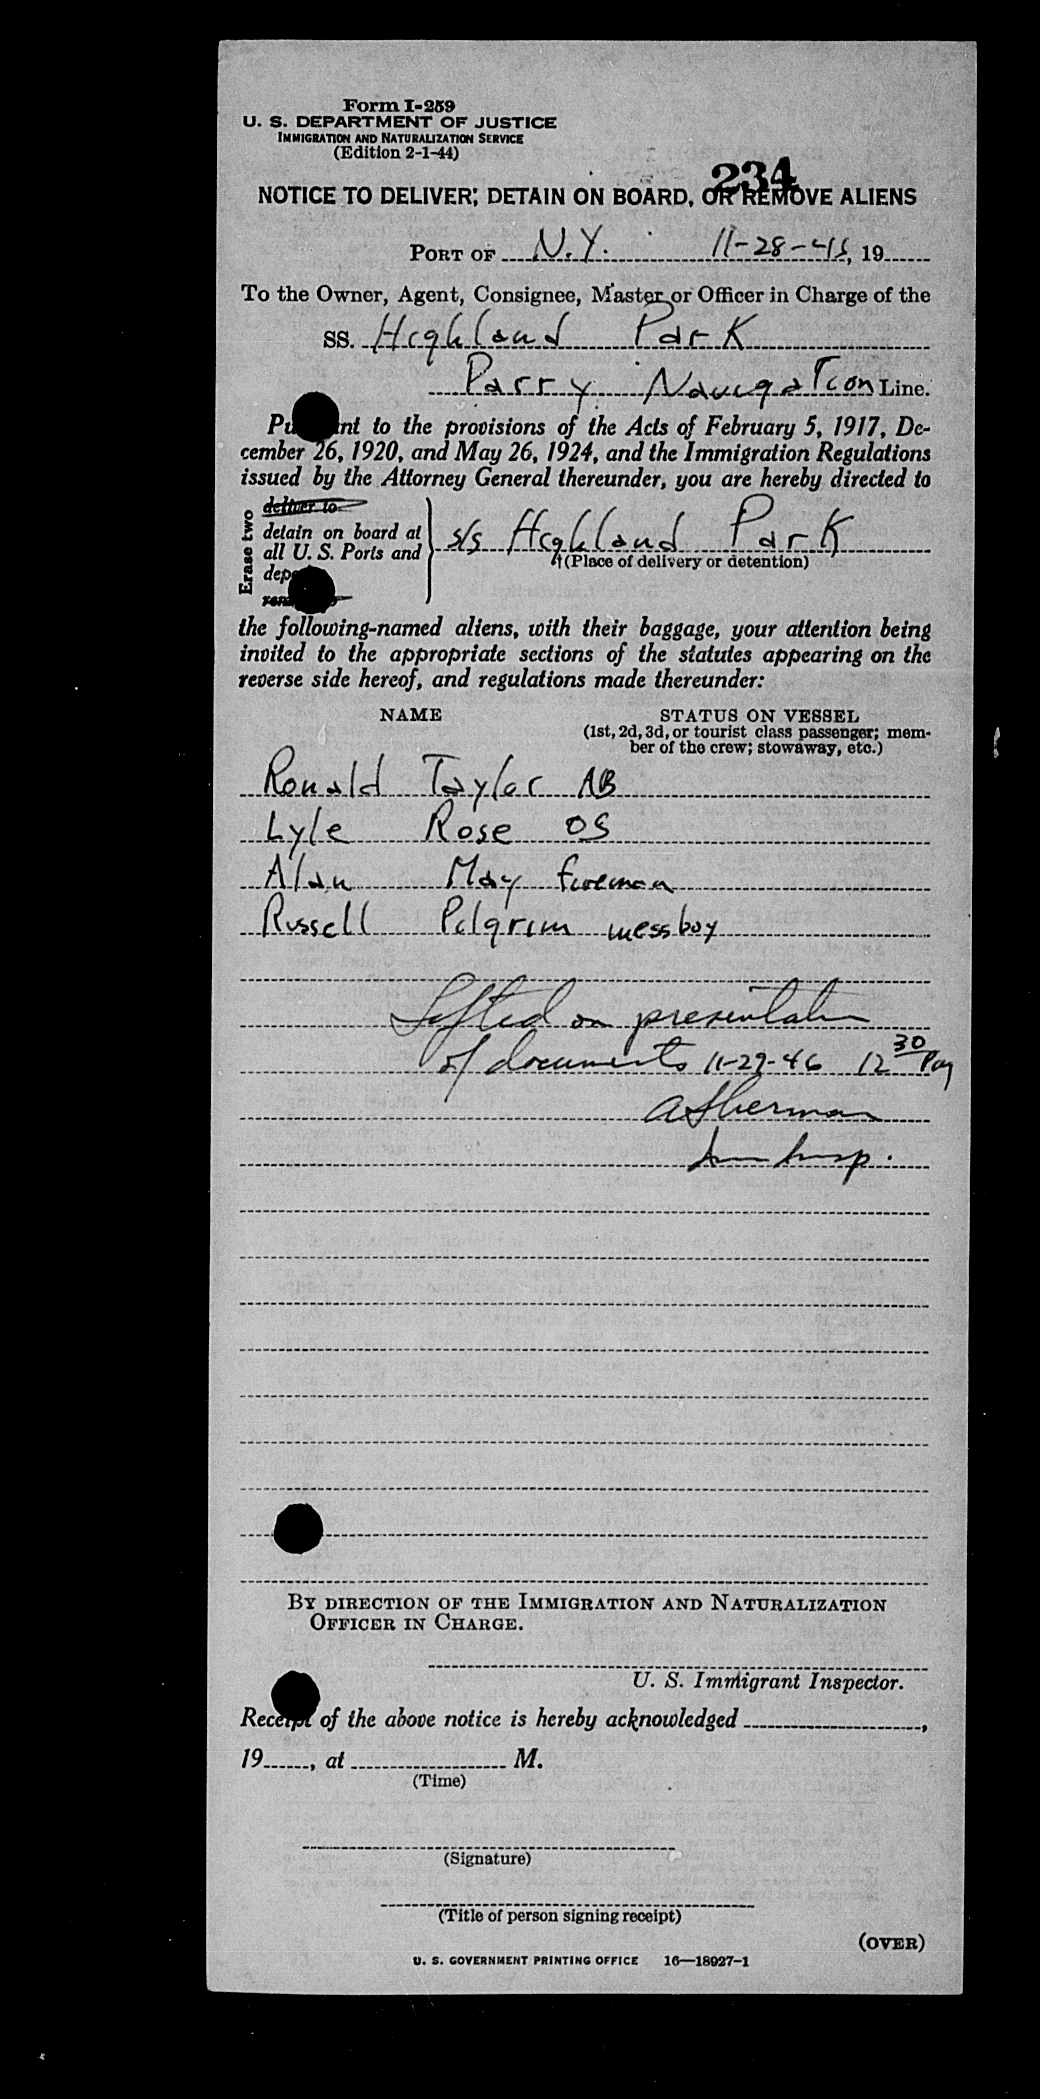 Form I-259
U. S. DEPARTMENT OF JUSTICE
IMMIGRATION AND NATURALIZATION SERVICE
(Edition 2-1-44)
234
NOTICE TO DELIVER, DETAIN ON BOARD, OR REMOVE ALIENS
PORT OF N.Y. 11-28-45, 19
To the Owner, Agent, Consignee, Master or Officer in Charge of the
SS. Highland Park
Parry Navigation Line.
Pursuant to the provisions of the Acts of February 5, 1917, De-
cember 26, 1920, and May 26, 1924, and the Immigration Regulations
issued by the Attorney General thereunder, you are hereby directed to
Erase two
deliver to
detain on board at
all U. S. Ports and
s/s Highland Park
†(Place of delivery or detention)
the following-named aliens, with their baggage, your attention being
invited to the appropriate sections of the statutes appearing on the
reverse side hereof, and regulations made thereunder:
NAME STATUS ON VESSEL
(1st, 2d, 3d, or tourist class passenger; mem-
ber of the crew; stowaway, etc.)
Ronald Taylor AB
Lyle Rose OS
Alan May fireman
Russell Pilgrim messboy
Lifted on presentation
of documents 11-29-46 12 30 Pm
A Sherman
Imm Insp.
BY DIRECTION OF THE IMMIGRATION AND NATURALIZATION
OFFICER IN CHARGE.
U. S. Immigrant Inspector.
Receipt of the above notice is hereby acknowledged ,
19 , at M.
(Time)
(Signature)
(Title of person signing receipt)
(OVER)
U. S. GOVERNMENT PRINTING OFFICE 16—18927-1